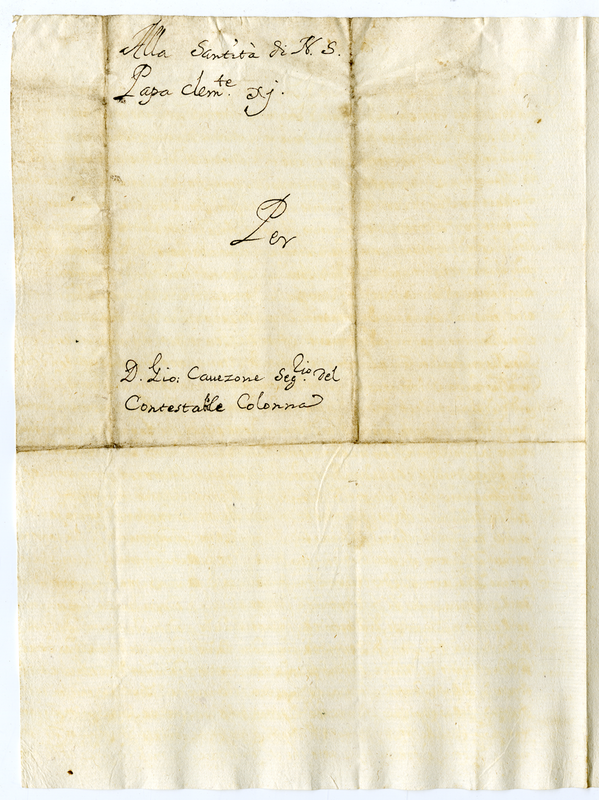 Alla Santità di N. S.
Papa Clem.te xj.
Per
D. Gio: Cavezone Seg.rio del
Contestabile Colonna